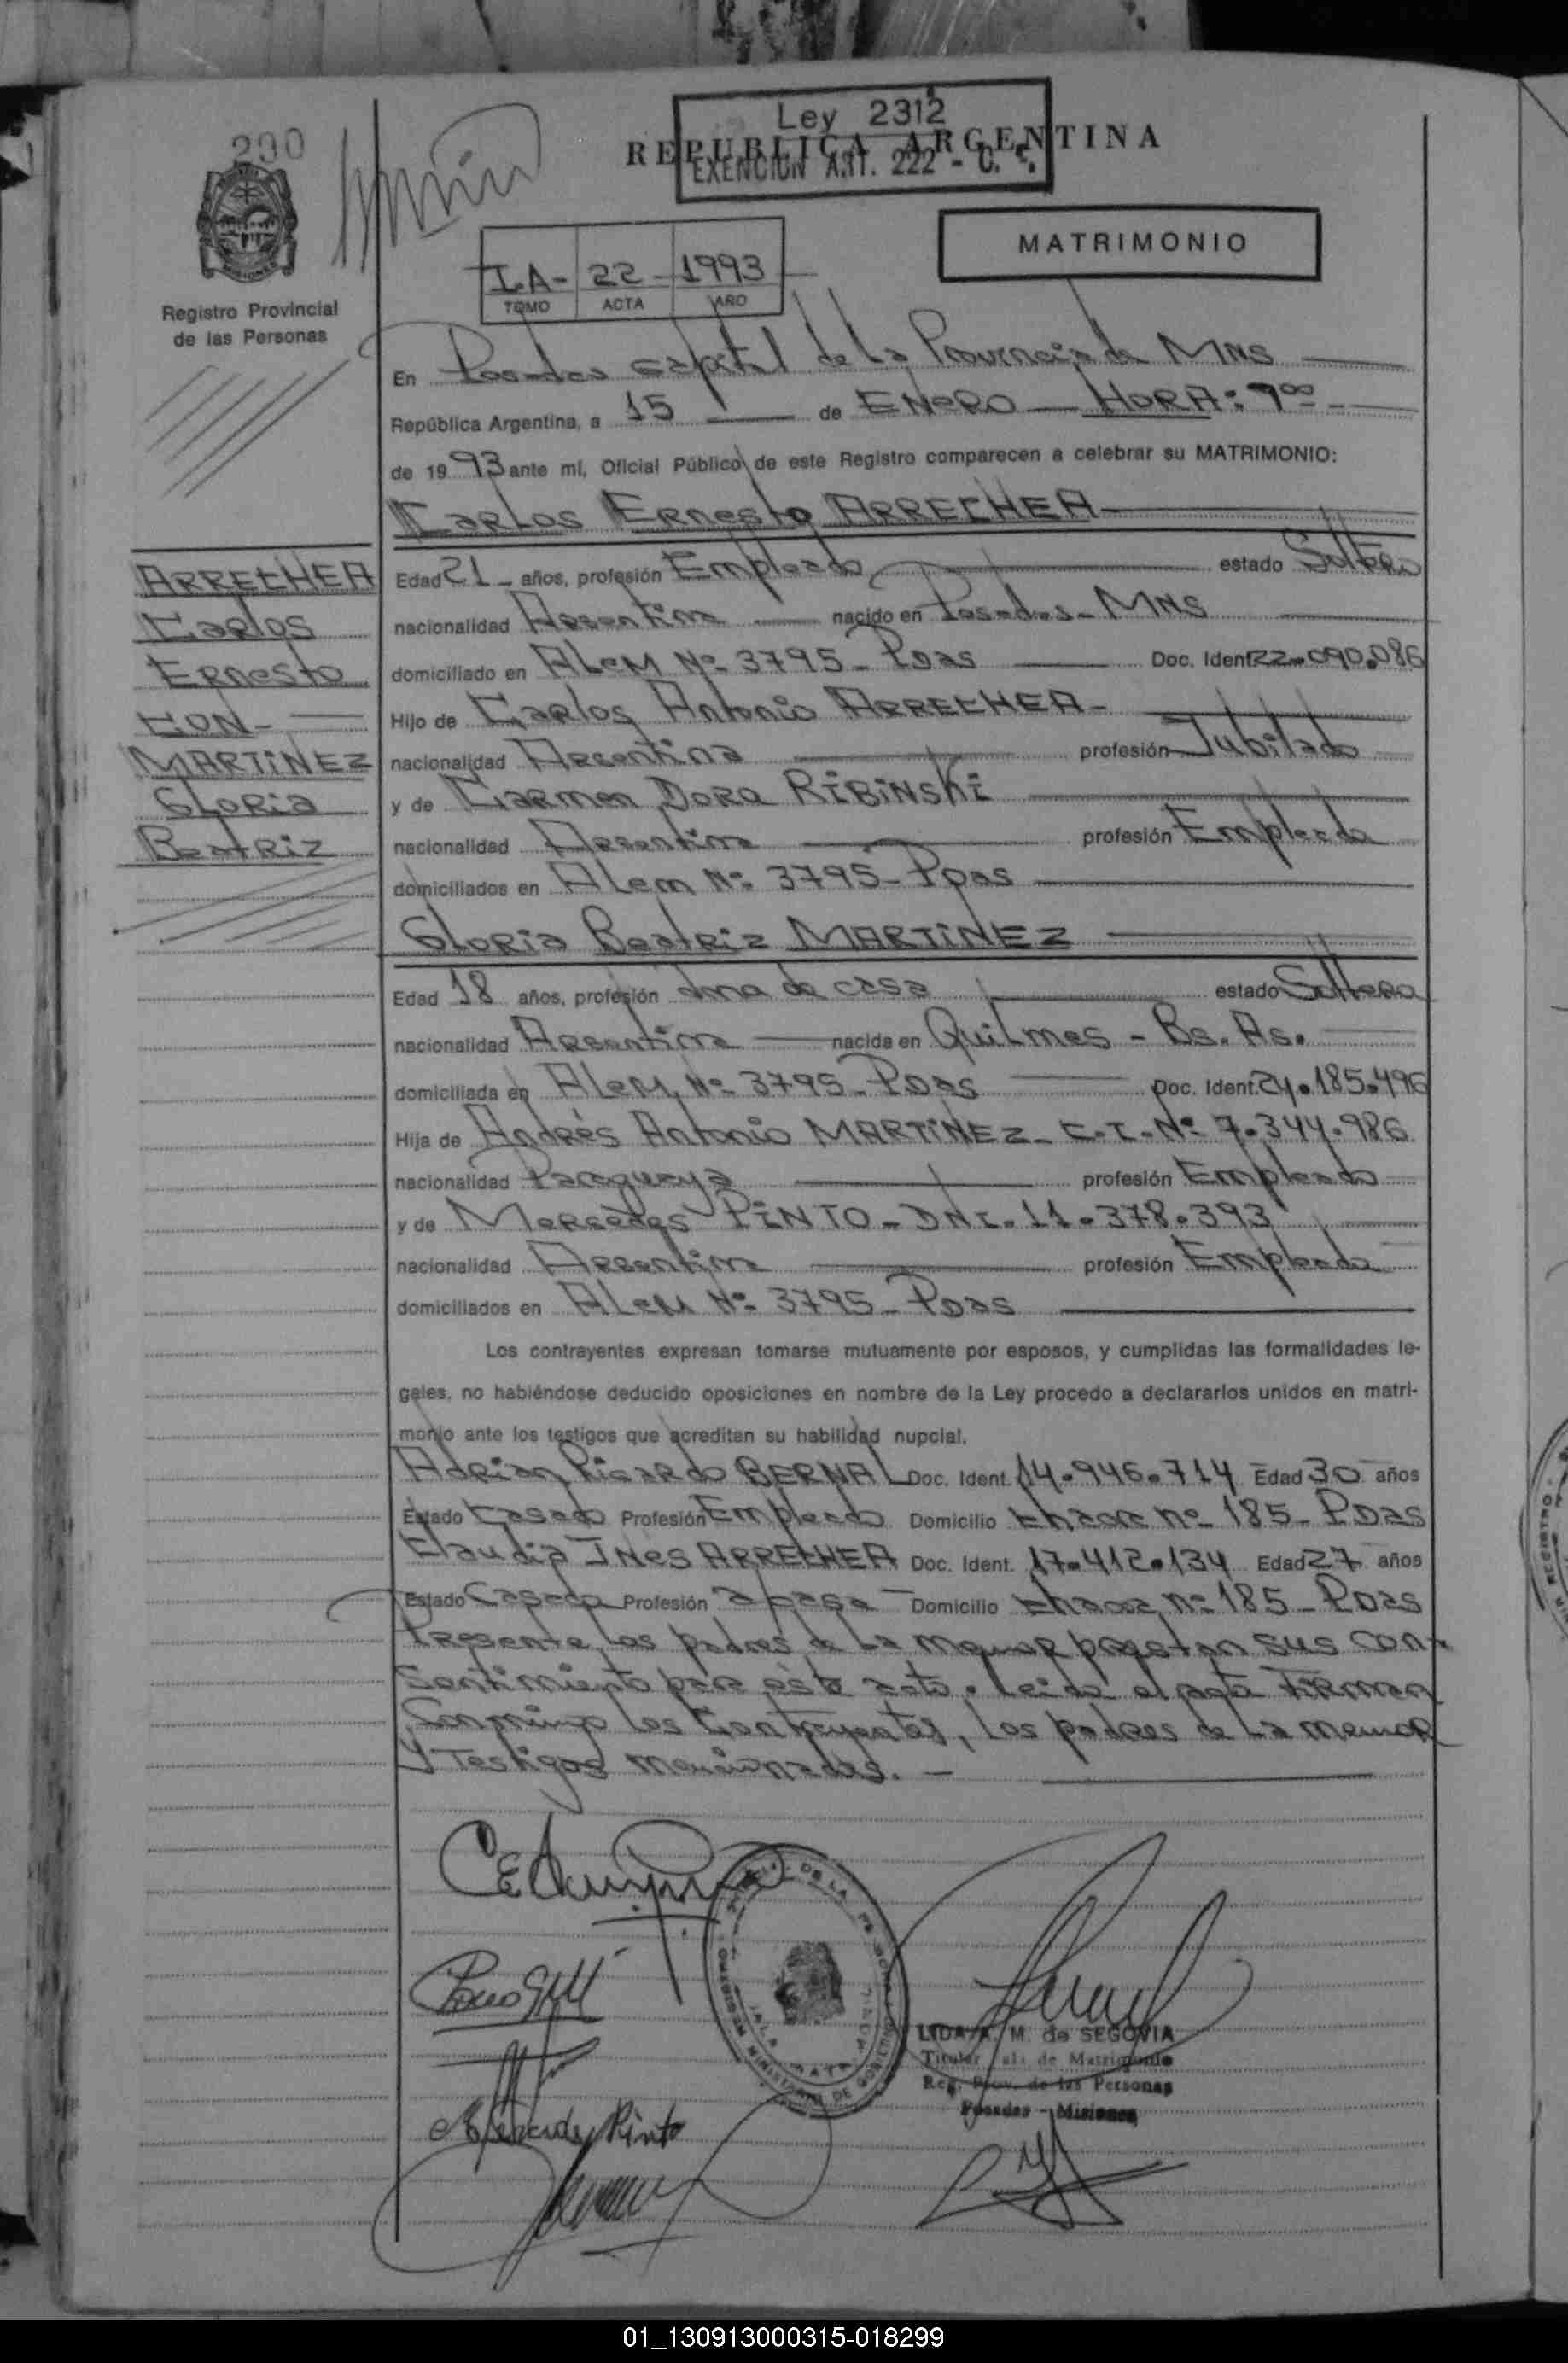 290
Ley 2312
REPUBLICA ARGENTINA
EXENCION ART. 222 - C. F.
MATRIMONIO
I.A- 22 - 1993
TOMO ACTA AÑO
MISIONES
Registro Provincial
de las Personas
En Posadas capital de la Provincia de MNS
República Argentina, a 15 de ENERO HORA: 9 00
de 19 93 ante mí, Oficial Público de este Registro comparecen a celebrar su MATRIMONIO:
Carlos Ernesto ARRECHEA
ARRECHEA
Carlos
Ernesto
CON-
MARTINEZ
Gloria
Beatriz
Edad 21 años, profesión Empleado estado Soltero
nacionalidad Argentina nacido en Posadas - MNS
domiciliado en ALEM Nº 3795 - Pdas Doc. Ident. 22.090.086
Hijo de Carlos Antonio ARRECHEA-
nacionalidad Argentina profesión Jubilado
y de Carmen Dora RIBINSKI
nacionalidad Argentina profesión Empleada
domiciliados en Alem Nº 3795 - Pdas
Gloria Beatriz MARTINEZ
Edad 18 años, profesión Ama de casa estado Soltera
nacionalidad Argentina nacida en Quilmes - Bs. As.
domiciliada en ALEM Nº 3795 - Pdas Doc. Ident. 24.185.496
Hija de Andrés Antonio MARTINEZ - C.I. Nº 7.344.986
nacionalidad Paraguaya profesión Empleado
y de Mercedes PINTO - DNI. 11.378.393
nacionalidad Argentina profesión Empleada
domiciliados en ALEM Nº 3795 - Pdas
Los contrayentes expresan tomarse mutuamente por esposos, y cumplidas las formalidades le-
gales, no habiéndose deducido oposiciones en nombre de la Ley procedo a declararlos unidos en matri-
monio ante los testigos que acreditan su habilidad nupcial.
Adrian Ricardo BERNAL Doc. Ident. 14.946.714 Edad 30 años
Estado Casado Profesión Empleado Domicilio Chacra nº 185 - Pdas
Claudia INES ARRECHEA Doc. Ident. 17.412.134 Edad 27 años
Estado Casada Profesión Domicilio Chacra nº 185 - Pdas
Presente los padres de la menor prestan sus con-
sentimiento para este acto. Leida el acta Firman
Conmigo los Contrayentes, los padres de la menor
y Testigos mencionados. -
LIDA A. M. de SEGOVIA
Titular de Matrimonio
Reg. Prov. de las Personas
Posadas - Misiones
Mercedes Pinto
01_130913000315-018299